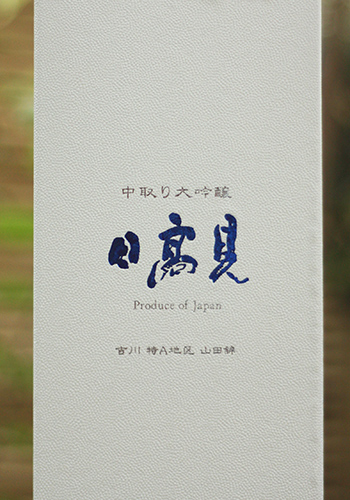 中取り大吟醸
日高見
Produce of Japan
吉川 特A地区 山田錦